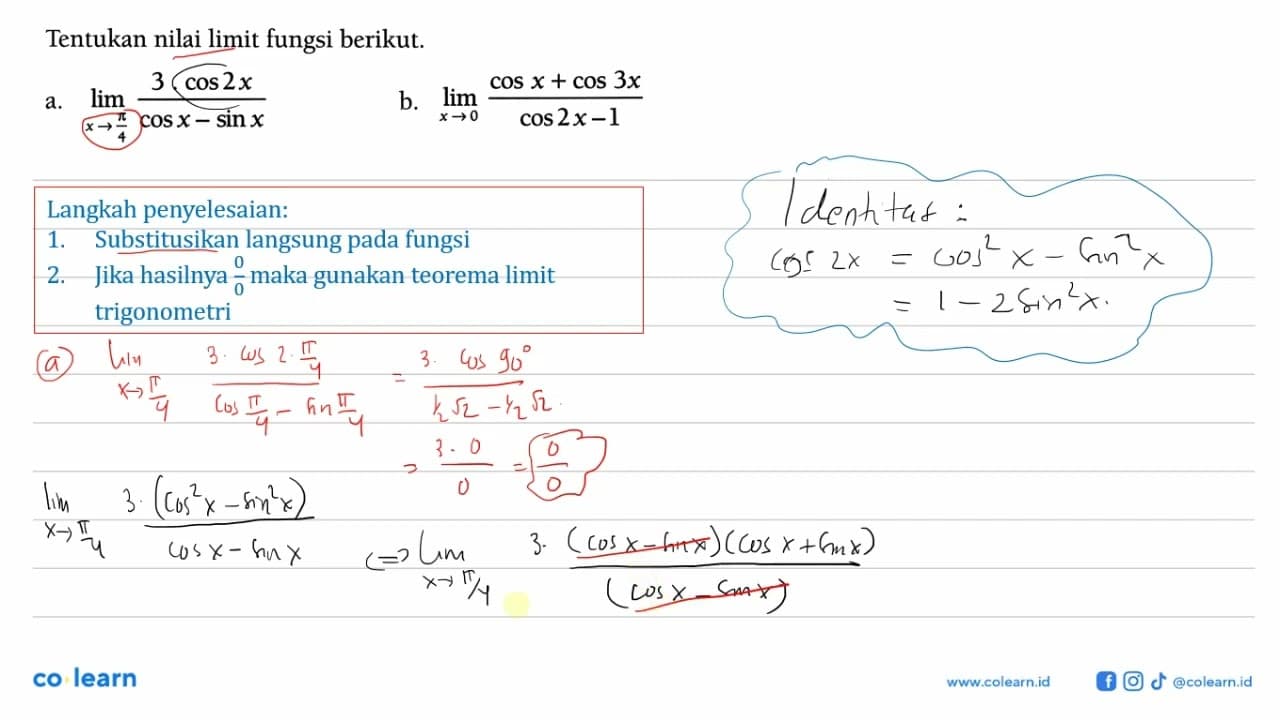 Tentukan nilai limit fungsi berikut.
a. lim x→π/4 3 cos 2x / cos x – sin x
b. lim x→0 cos x + cos 3x / cos 2x – 1
Langkah penyelesaian:
1. Substitusikan langsung pada fungsi
2. Jika hasilnya 0/0 maka gunakan teorema limit
trigonometri
Identitas :
cos 2x = cos² x – sin² x
= 1 – 2 sin² x.
(a) lim x→π/4 3. cos 2. π/4 / cos π/4 – sin π/4 = 3. cos 90° / ½√2 – ½√2.
= 3. 0 / 0 = 0/0
lim x→π/4 3. (cos² x – sin² x) / cos x – sin x
<=> lim x→π/4 3. (cos x – sin x)(cos x + sin x) / (cos x – sin x)
co learn
www.colearn.id
@colearn.id